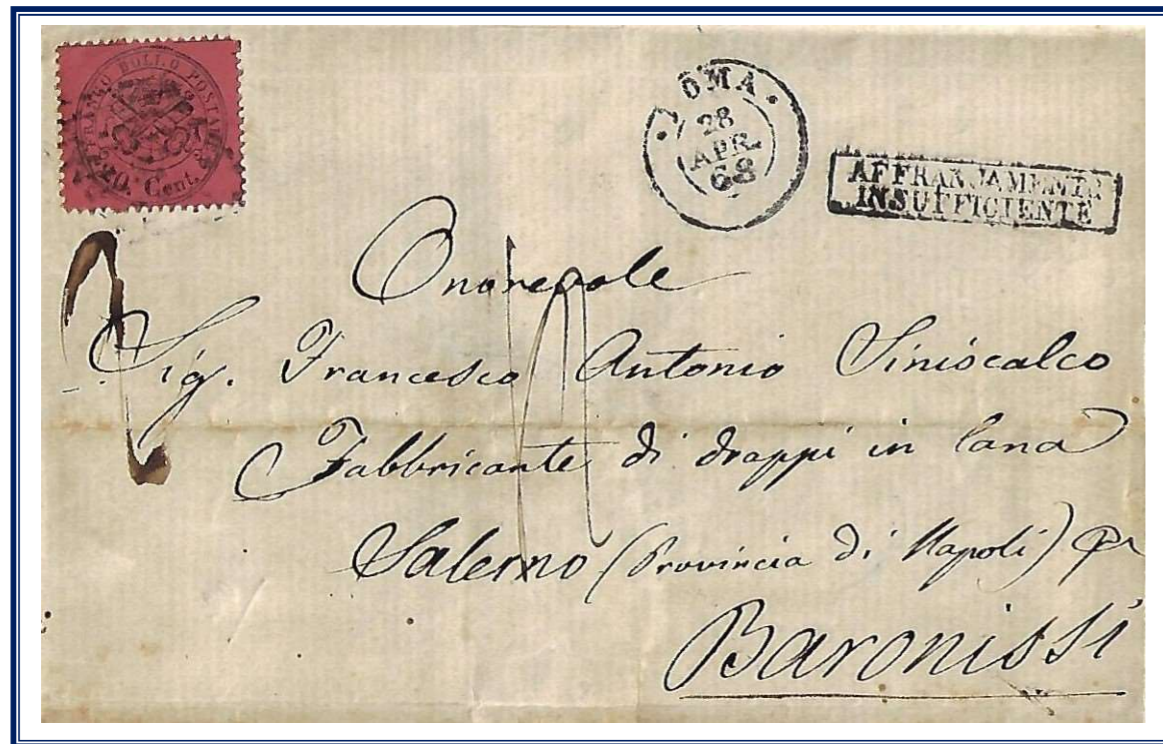 FRANCO BOLLO POSTALE
20. Cent.
ROMA
28
APR.
68
AFFRANCAMENTO
INSUFFICIENTE
Onorevole
Sig. Francesco Antonio Siniscalco
Fabbricante di drappi in lana
Salerno (Provincia di Napoli)
Baronissi